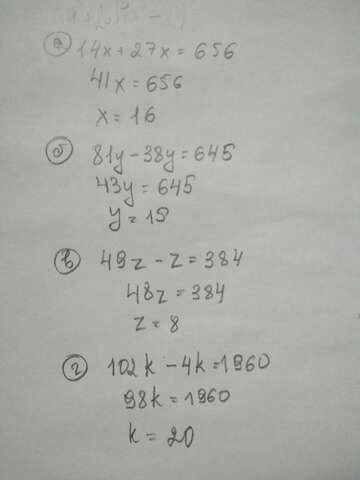 а) 14x + 27x = 656
41x = 656
x = 16
б) 81y - 38y = 645
43y = 645
y = 15
в) 49z - z = 384
48z = 384
z = 8
г) 102k - 4k = 1960
98k = 1960
k = 20